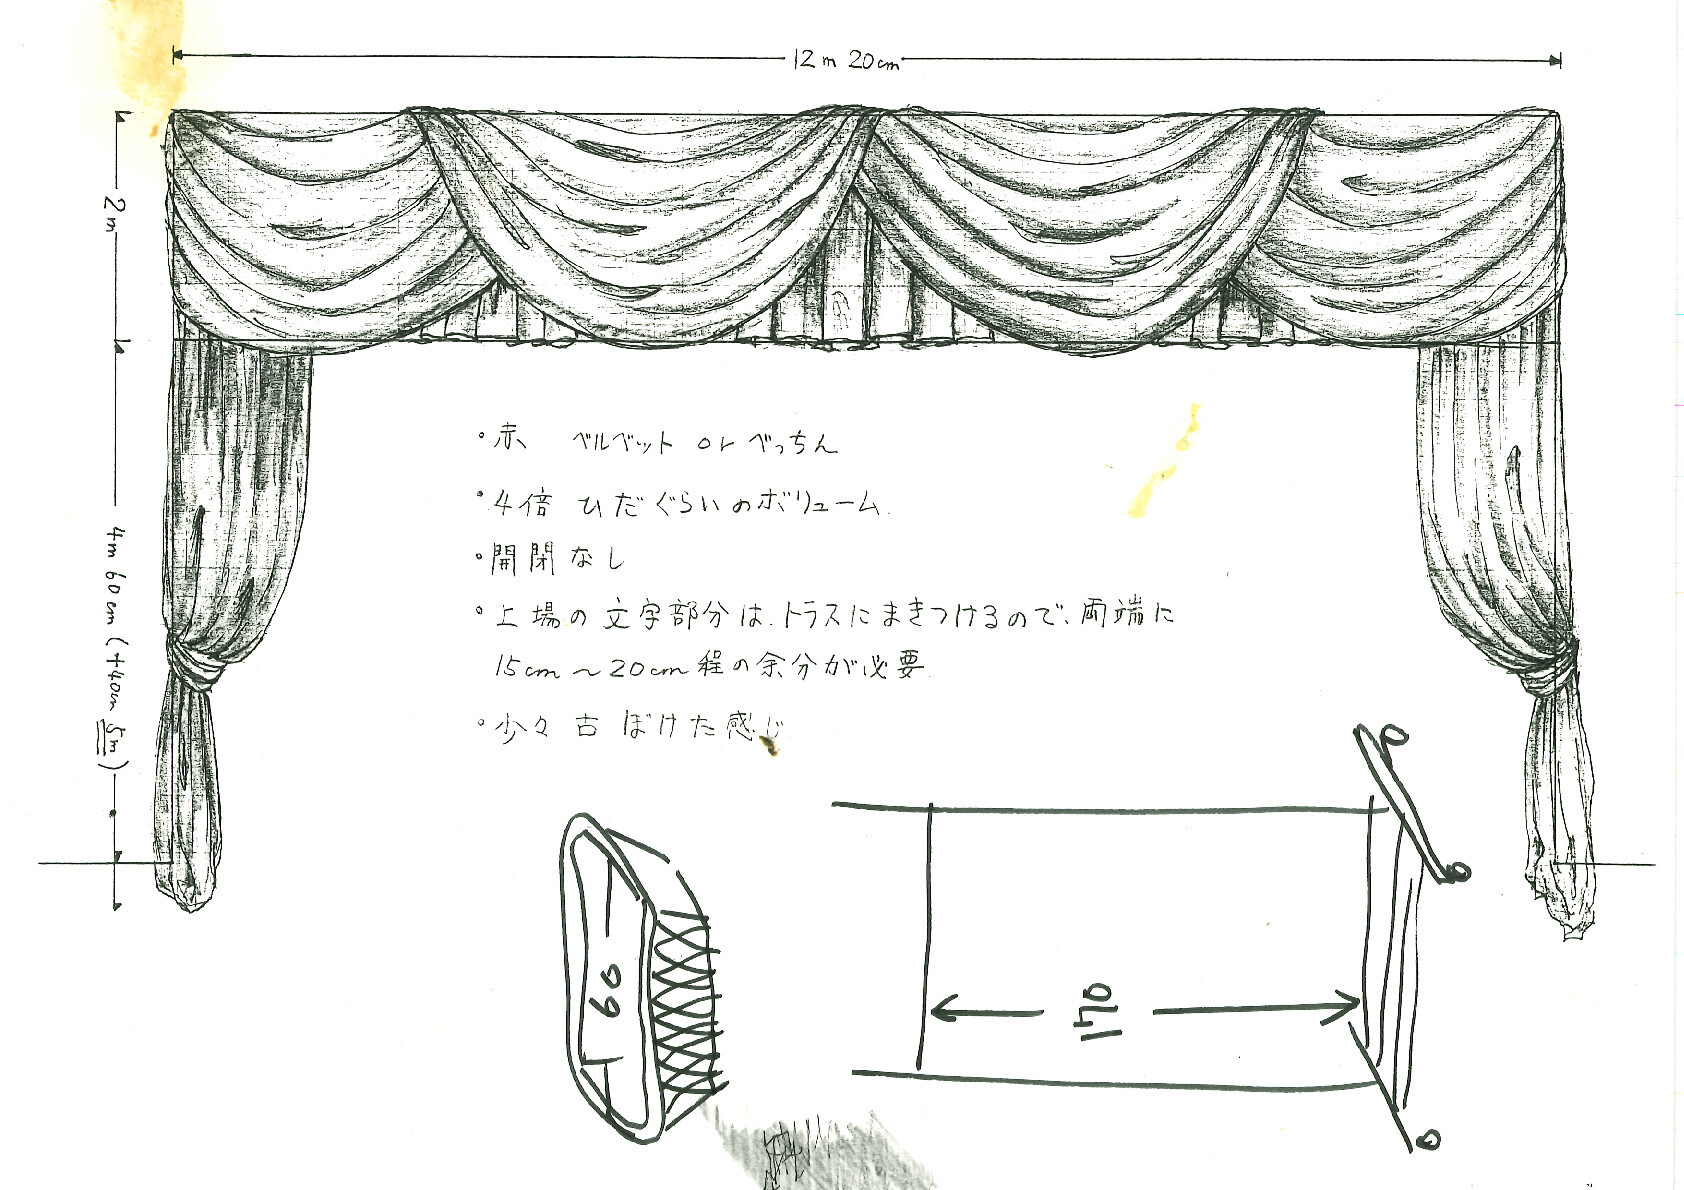 12m 20cm
2m
4m 60cm (+40cm 5m)
・赤、 ベルベット or べっちん
・4倍 ひだぐらいのボリューム.
・開閉なし
・上場の文字部分は、トラスにまきつけるので、両端に
15cm～20cm程の余分が必要.
・少々古ぼけた感じ
60
170